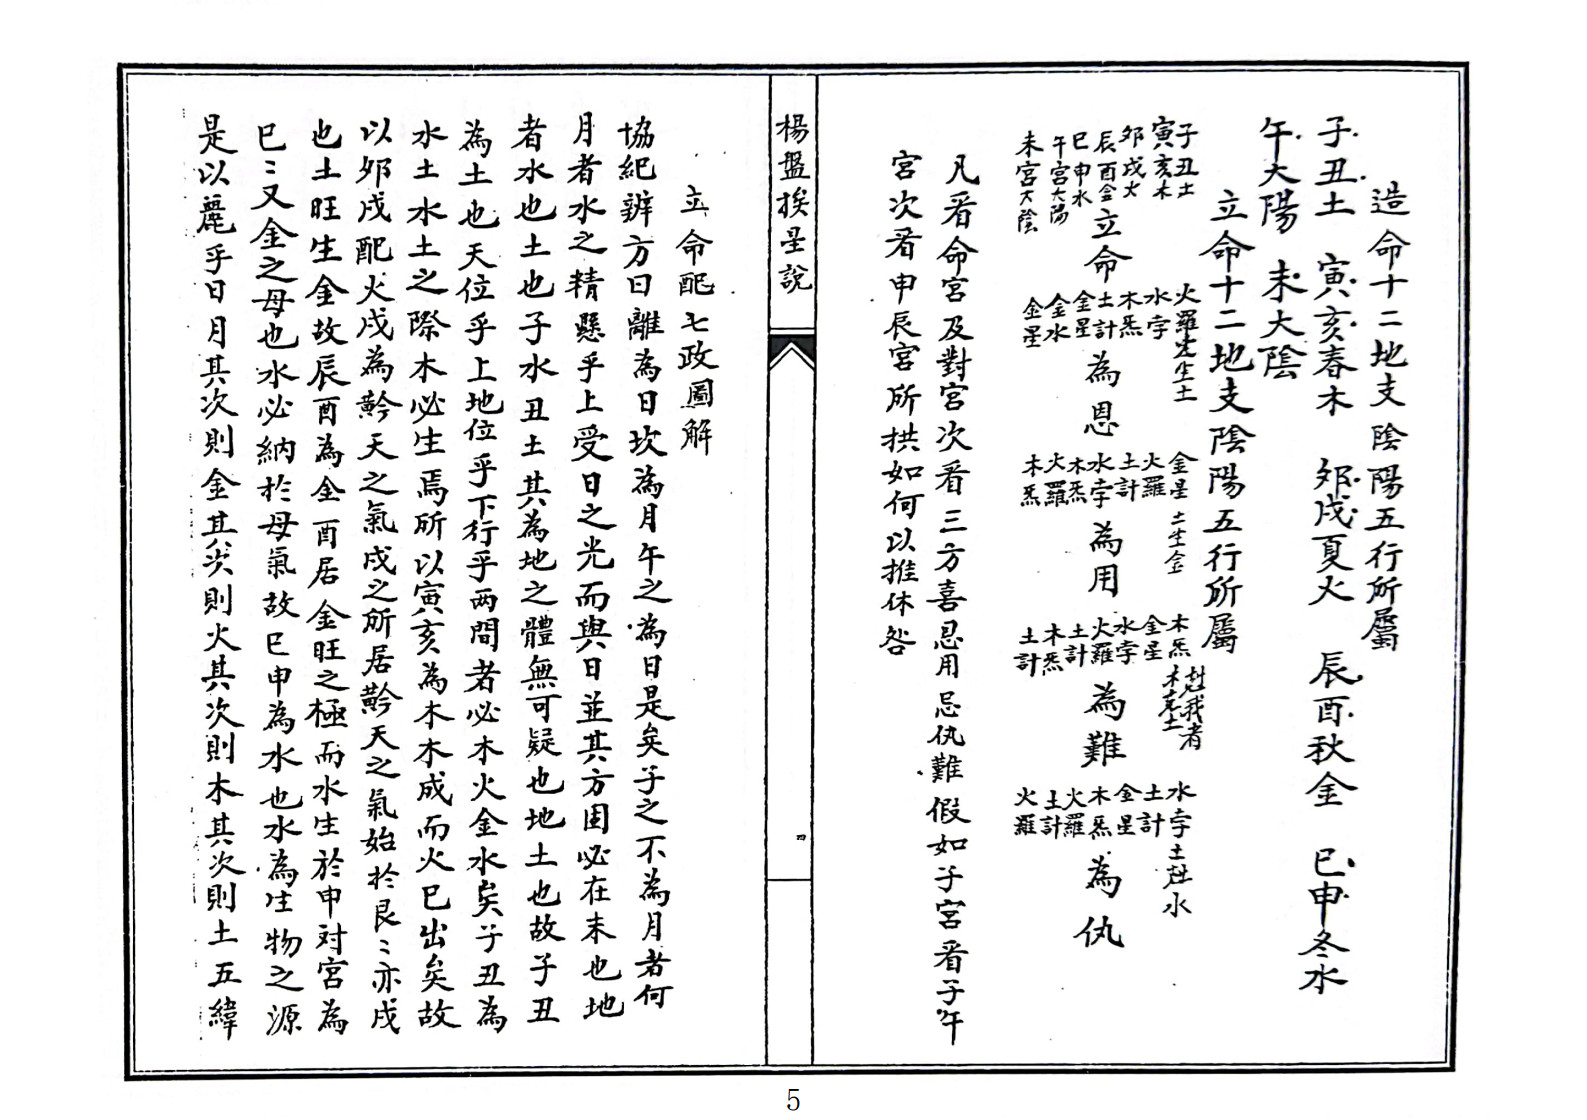 造命十二地支陰陽五行所屬
子丑土 寅亥春木 夘戌夏火 辰酉秋金 巳申冬水
午大陽 未大陰
立命十二地支陰陽五行所屬
子丑土 火羅火生土 金星土生金 木炁尅我者木克土 水孛土尅水
寅亥木 水孛 火羅 金星 土計
夘戌火 木炁 土計 水孛 金星
辰酉金 土計 水孛 火羅 木炁
立命 為恩 為用 為難 為仇
巳申水 金星 木炁 土計 火羅
午宮大陽 金水 火羅 木炁 土計
未宮大陰 金星 木炁 土計 火羅
凡看命宮及對宮次看三方喜忌用忌仇難假如子宮看子午
宮次看申辰宮所拱如何以推休咎
楊盤挨星說
四
立命配七政圖解
協紀辦方曰離為日坎為月午之為日是矣子之不為月者何
月者水之精懸乎上受日之光而與日並其方固必在未也地
者水也土也子水丑土其為地之體無可疑也地土也故子丑
為土也天位乎上地位乎下行乎两間者必木火金水矣子丑為
水土水土之際木必生焉所以寅亥為木木成而火巳出矣故
以夘戌配火戌為黅天之氣戌之所居黅天之氣始於艮〻亦戌
也土旺生金故辰酉為金酉居金旺之極而水生於申対宮為
巳〻又金之母也水必納於母氣故巳申為水也水為生物之源
是以麗乎日月其次則金其次則火其次則木其次則土五緯
5